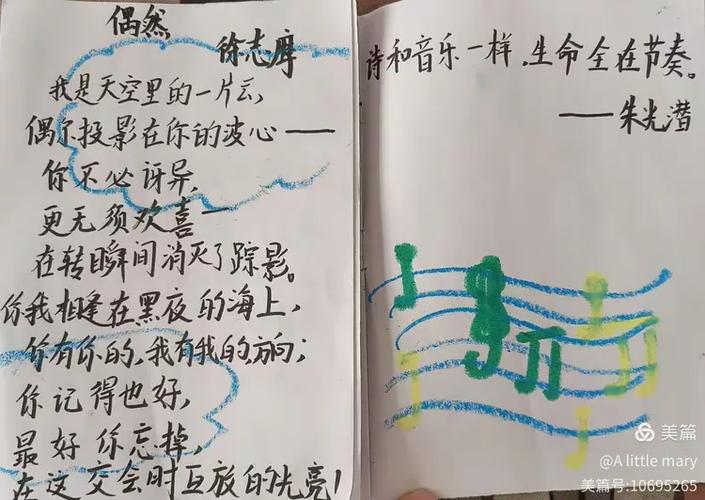 偶然
徐志摩
我是天空里的一片云,
偶尔投影在你的波心——
你不必讶异,
更无须欢喜—
在转瞬间消灭了踪影。
你我相逢在黑夜的海上,
你有你的,我有我的,方向;
你记得也好,
最好你忘掉,
在这交会时互放的光亮!
诗和音乐一样,生命全在节奏。
——朱光潜
美篇
@A little mary
美篇号:10695265